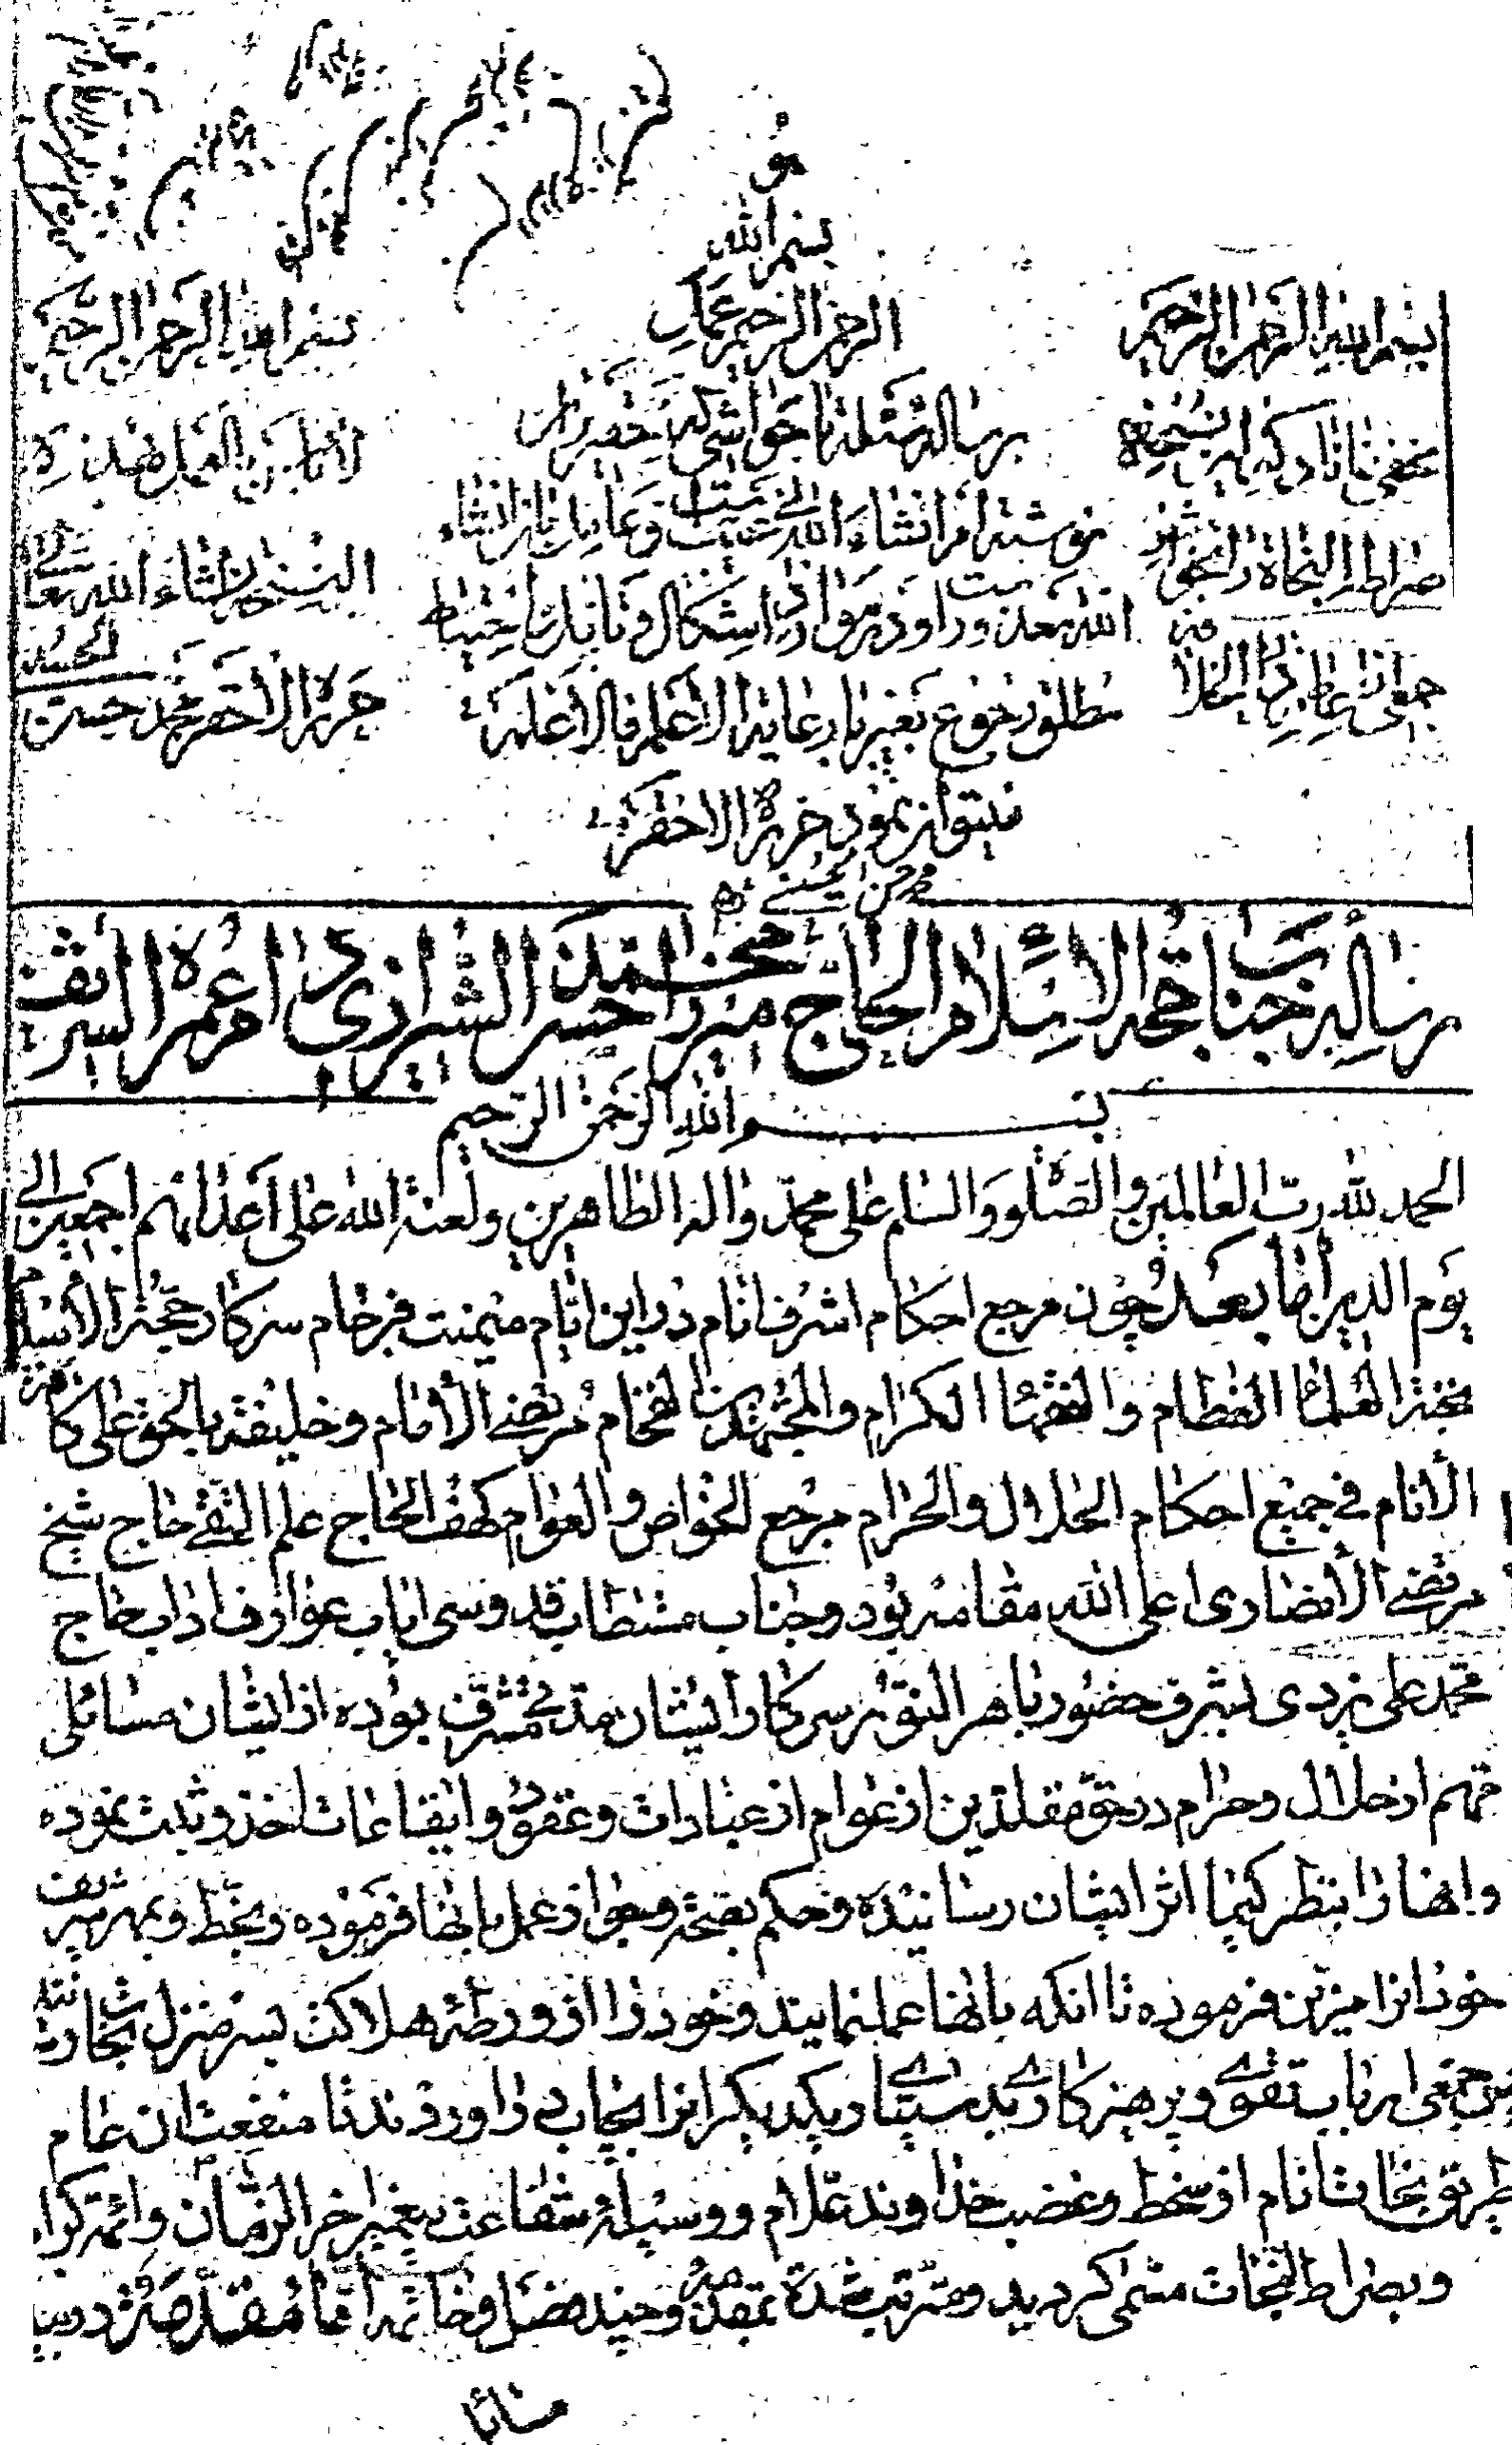 هو
بسم الله
الرحمن الرحیم عمل
برساله شریفه با حواشی که حضرات
نوشته‌اند انشاء الله تعالی صحیح است و عامل بان انشاء
الله معذور است و در موارد اشکال و تامل یا احتیاط
مطلق رجوع بغیر با رعایة الاعلم فالاعلم
میتوان نمود حرره الاحقر
بسم الله الرحمن الرحیم
مخفی نماناد که این نسخه
صراط النجاة
بسم الله الرحمن الرحیم
لا باس بالعمل بهذه
النسخة انشاء الله تعالی
حرره الاحقر محمد حسین
رساله جناب حجة الاسلام الحاج میرزا محمد حسن الشیرازی دام عمره الشریف
بسم الله الرحمن الرحیم
الحمد لله رب العالمین والصلوة والسلام علی محمد واله الطاهرین ولعنة الله علی اعدائهم اجمعین الی
یوم الدین اما بعد چون مرجع احکام اشرف انام در این ایام میمنت فرجام سرکار حجة الاسلام
نخبة العلماء العظام والفقهاء الکرام والمجتهدین الفخام مرتضی الانام وخلیفة بالحق علی کافة
الانام فی جمیع احکام الحلال والحرام مرجع الخواص والعوام کهف الحاج علم التقی حاج شیخ
مرتضی الانصاری اعلی الله مقامه بود وجناب مستطاب قدوسی ایاب عوارف اداب حاج
محمد علی یزدی بشرف حضور باهر النور سرکار ایشان مدتی مشرف بوده از ایشان مسائلی
مهم از حلال وحرام در حق مقلدین از عوام از عبادات وعقود وایقاعات اخذ وثبت نموده
وانها را بنظر کیمیا اثر ایشان رسانیده وحکم بصحة وجواز عمل بانها فرموده وبخط وبمهر شریف
خود انرا مزین فرموده تا انکه بانها عمل نمایند وخود را از ورطه هلاکت بسر منزل نجات رسانند
پس جمعی ارباب تقوی وپرهیزکاری بدستیاری یکدیگر انرا بچاپ در اوردند تا منفعت ان عام
طریق نجات انام از سخط وغضب خداوند علام ووسیله شفاعت پیغمبر اخر الزمان وائمه کرام
وبصراط النجات مسمی گردید ومرتب شده بمقدمه وچند فصل وخاتمه اما مقدمه در بیان
مسائل